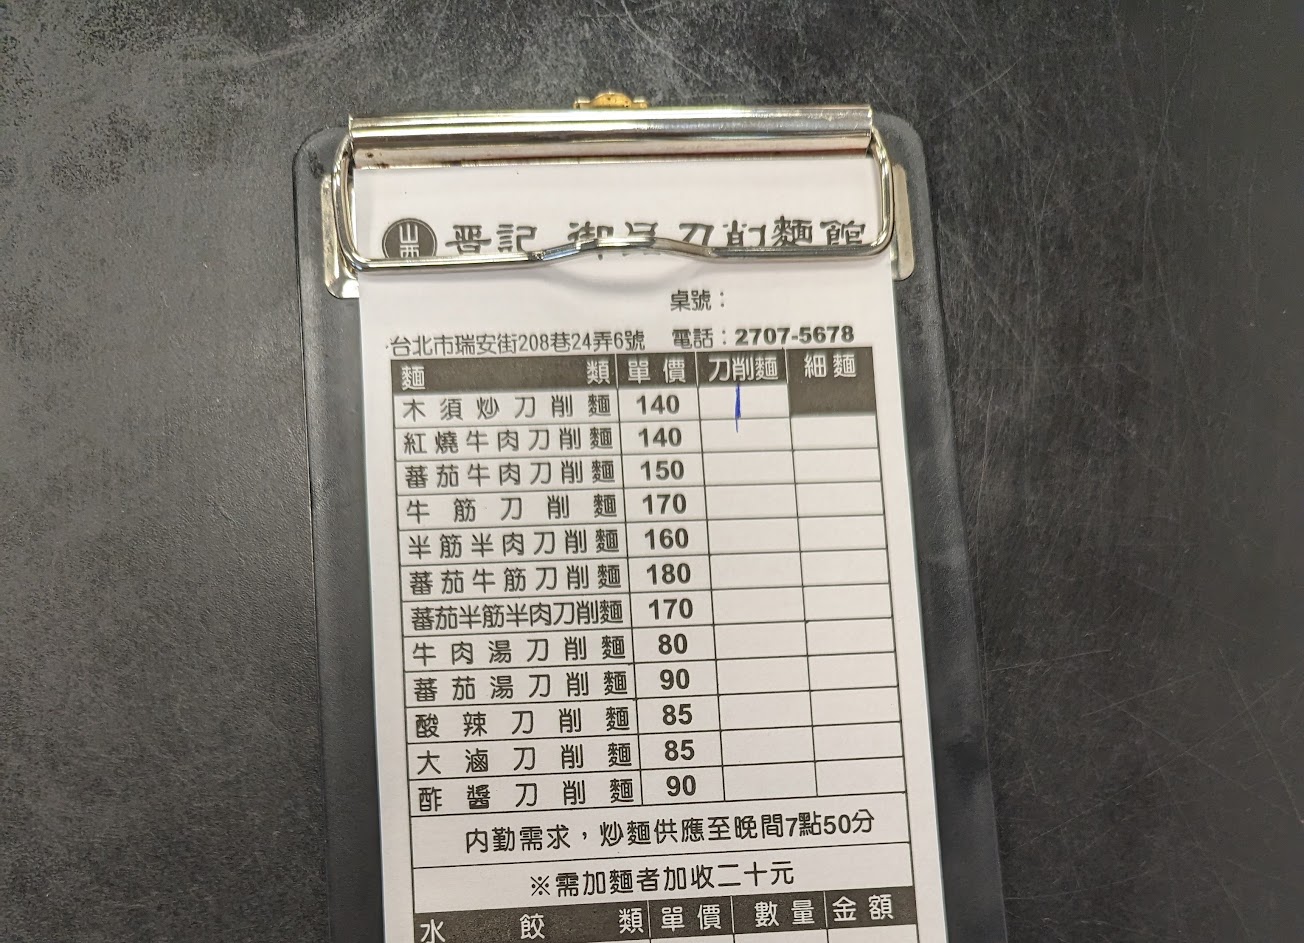 山西 晋記 御膳刀削麵館
桌號：
台北市瑞安街208巷24弄6號 電話：2707-5678
麵類 單價 刀削麵 細麵
木須炒刀削麵 140
紅燒牛肉刀削麵 140
蕃茄牛肉刀削麵 150
牛筋刀削麵 170
半筋半肉刀削麵 160
蕃茄牛筋刀削麵 180
蕃茄半筋半肉刀削麵 170
牛肉湯刀削麵 80
蕃茄湯刀削麵 90
酸辣刀削麵 85
大滷刀削麵 85
酢醬刀削麵 90
內勤需求，炒麵供應至晚間7點50分
※需加麵者加收二十元
水餃類 單價 數量 金額